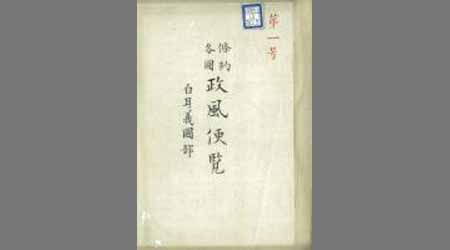 第一号
條約
各國
政風便覧
白耳義國部